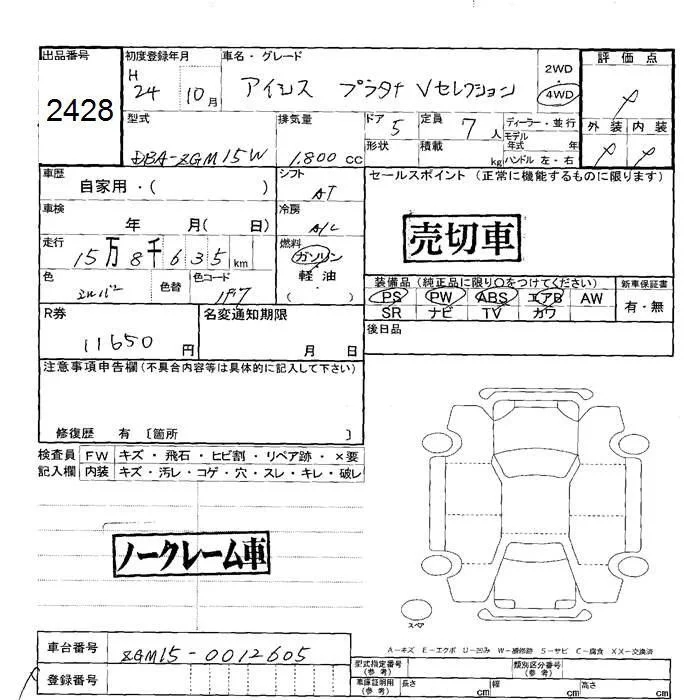 出品番号 初度登録年月 車名・グレード 評価点
2428
H24 10月 アイシス プラタナ Vセレクション 2WD 4WD
型式 排気量 ドア 5 定員 7 人 ディーラー・並行 外装 内装
DBA-ZGM15W 1,800 cc 形状 積載 kg モデル年式 年 ハンドル 左・右
車歴 自家用・( ) シフト AT セールスポイント (正常に機能するものに限ります)
車検 年 月( 日) 冷房 A/C
売切車
走行 15万8千635km 燃料 ガソリン 軽油 ( )
色 シルバー 色替 色コード 1F7
装備品(純正品に限り○をつけてください) 新車保証書
PS PW ABS エアB AW 有・無
SR ナビ TV カワ
R券 11650円 名変通知期限 月 日
後日品
注意事項申告欄(不具合内容等は具体的に記入して下さい)
修復歴 有 〔箇所 〕
検査員 FW キズ・飛石・ヒビ割・リペア跡・×要
記入欄 内装 キズ・汚レ・コゲ・穴・スレ・キレ・破レ
ノークレーム車
スペア
A-キズ E-エクボ U-凹み W-補修跡 S-サビ C-腐食 XX-交換済
車台番号 ZGM15-0012605
型式指定番号(参考) 類別区分番号(参考)
登録番号
車庫証明用(参考) 長さ cm 幅 cm 高さ cm